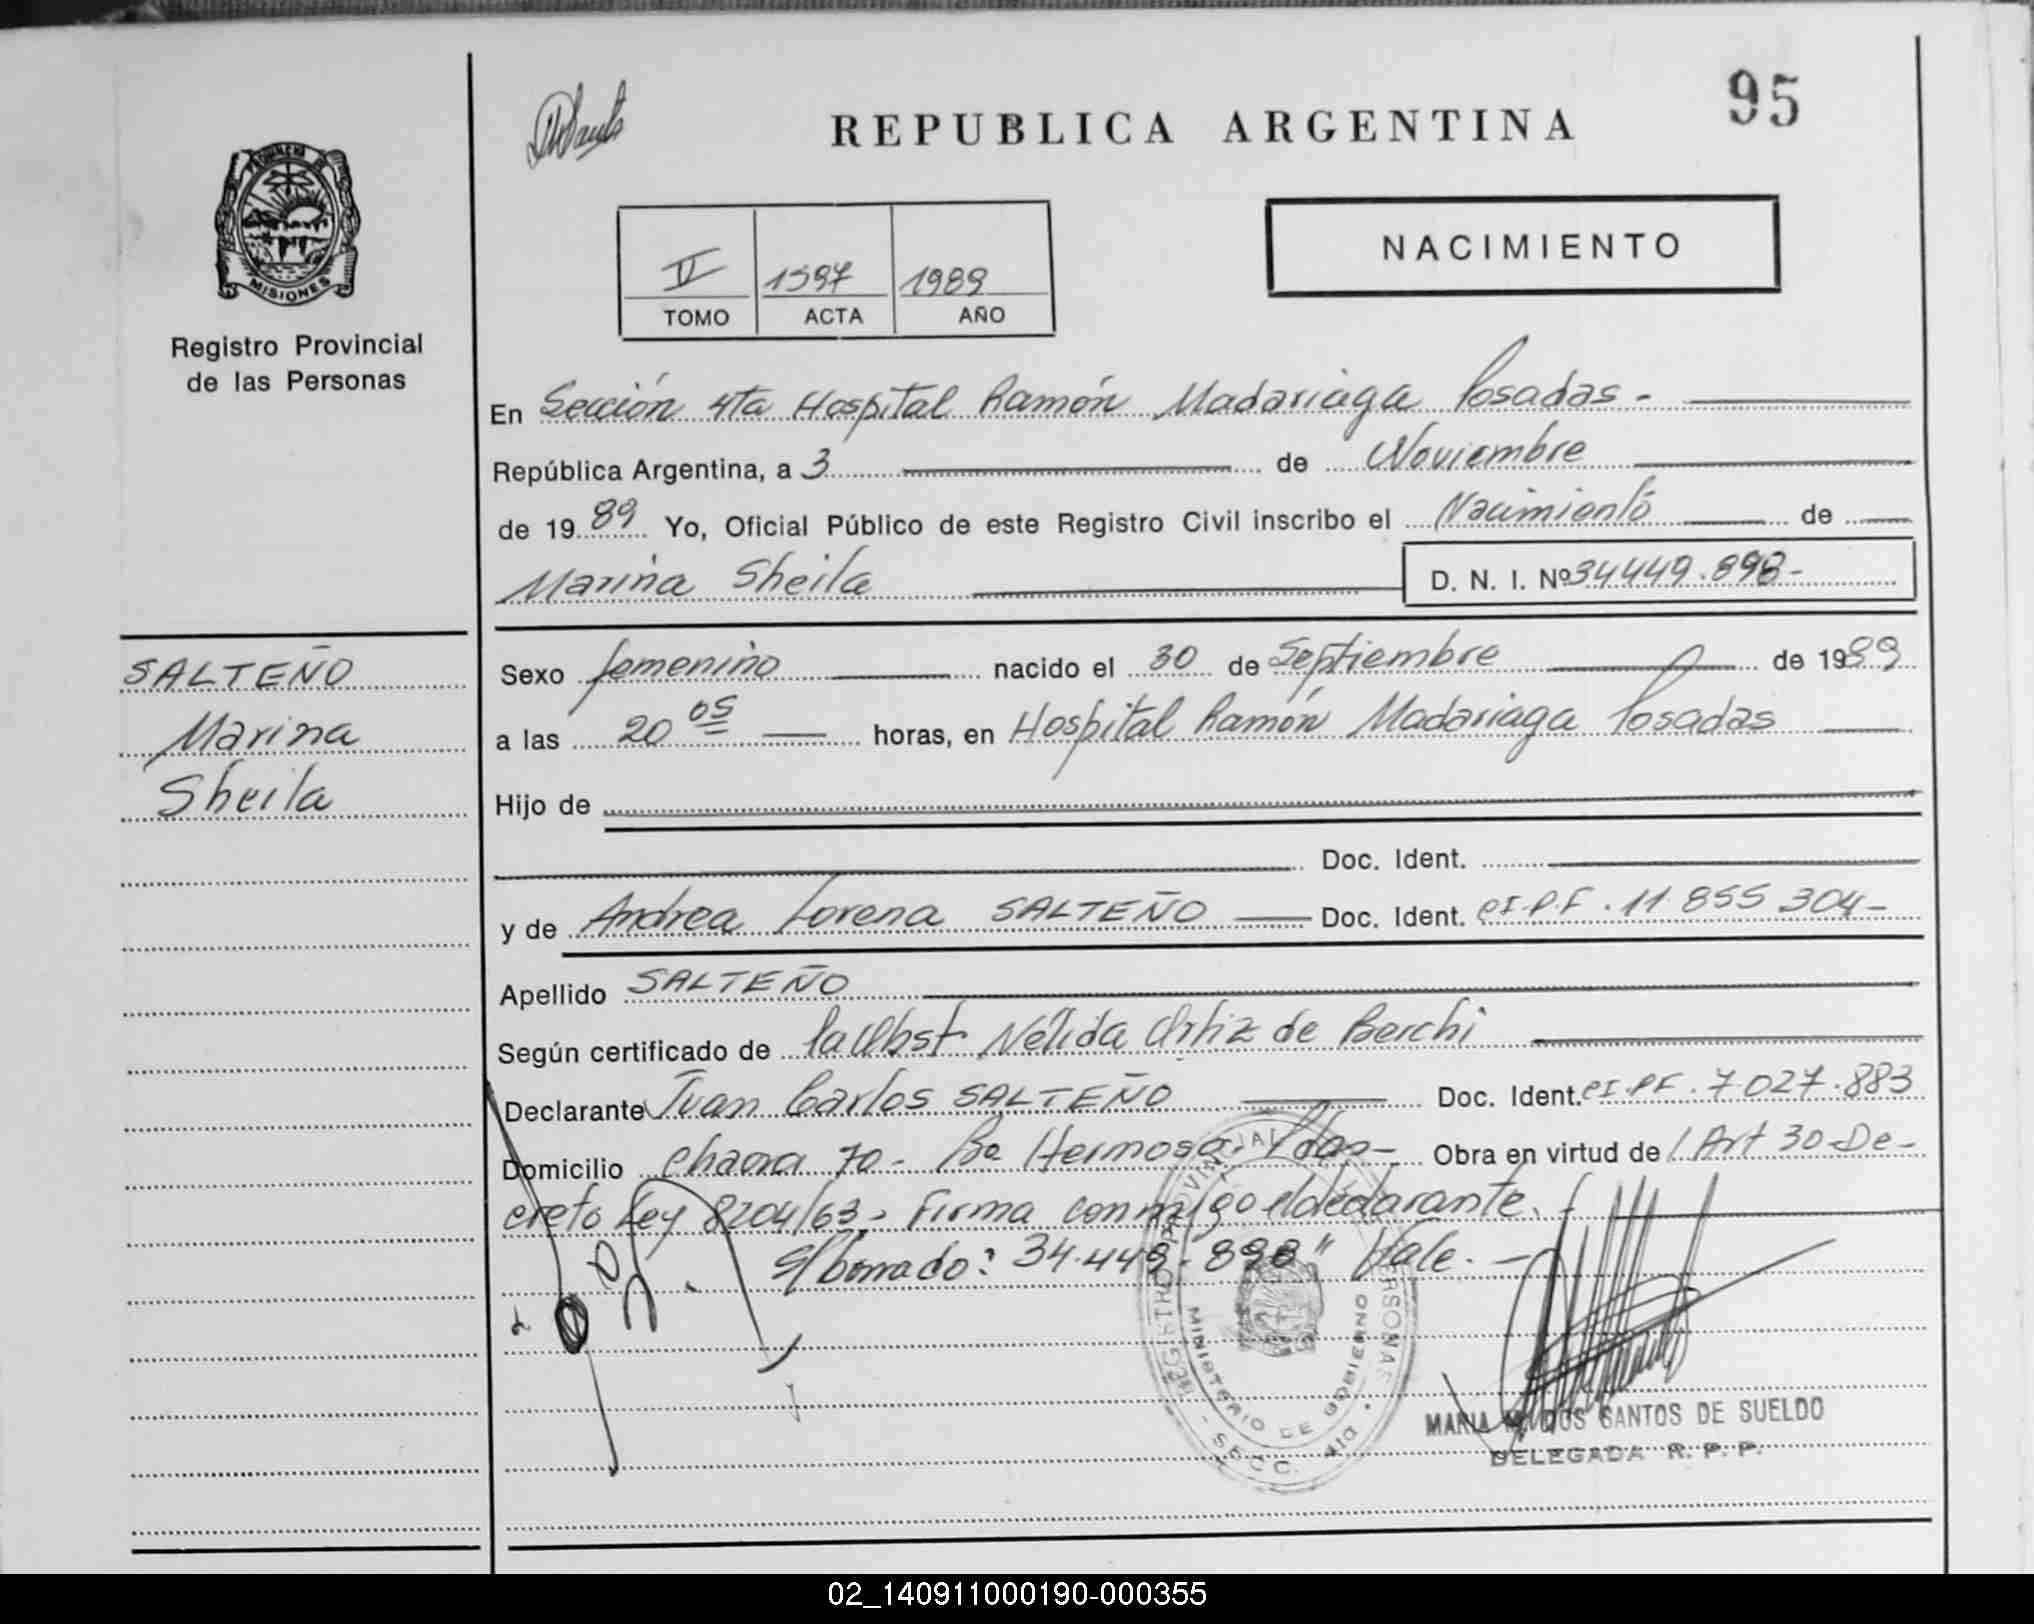 95
REPUBLICA ARGENTINA
PROVINCIA DE
MISIONES
Registro Provincial
de las Personas
NACIMIENTO
1597 1989
TOMO ACTA AÑO
En Sección 4ta Hospital Ramón Madariaga Posadas.-
República Argentina, a 3 de Noviembre
de 1989 Yo, Oficial Público de este Registro Civil inscribo el Nacimiento de
Marina Sheila D. N. I. Nº 34449.898-
SALTEÑO
Marina
Sheila
Sexo femenino nacido el 30 de Septiembre de 1989
a las 20 05 horas, en Hospital Ramón Madariaga Posadas
Hijo de
Doc. Ident.
y de Andrea Lorena SALTEÑO Doc. Ident. CI.P.F. 11.855 304-
Apellido SALTEÑO
Según certificado de la Obst Nélida Ortiz de Berchi
Declarante Juan Carlos SALTEÑO Doc. Ident. CI.PF. 7.027.883
Domicilio Chacra 70- Ba Hermosa. Pdas- Obra en virtud de l Art 30-De-
creto Ley 8204/63.- Firma conmigo el declarante.
E/borrado: 34.449.898" Vale.-
REGISTRO PROVINCIAL DE LAS PERSONAS
MINISTERIO DE GOBIERNO
SECC. 4ta
MARIA DOS SANTOS DE SUELDO
DELEGADA R. P. P.
02_140911000190-000355